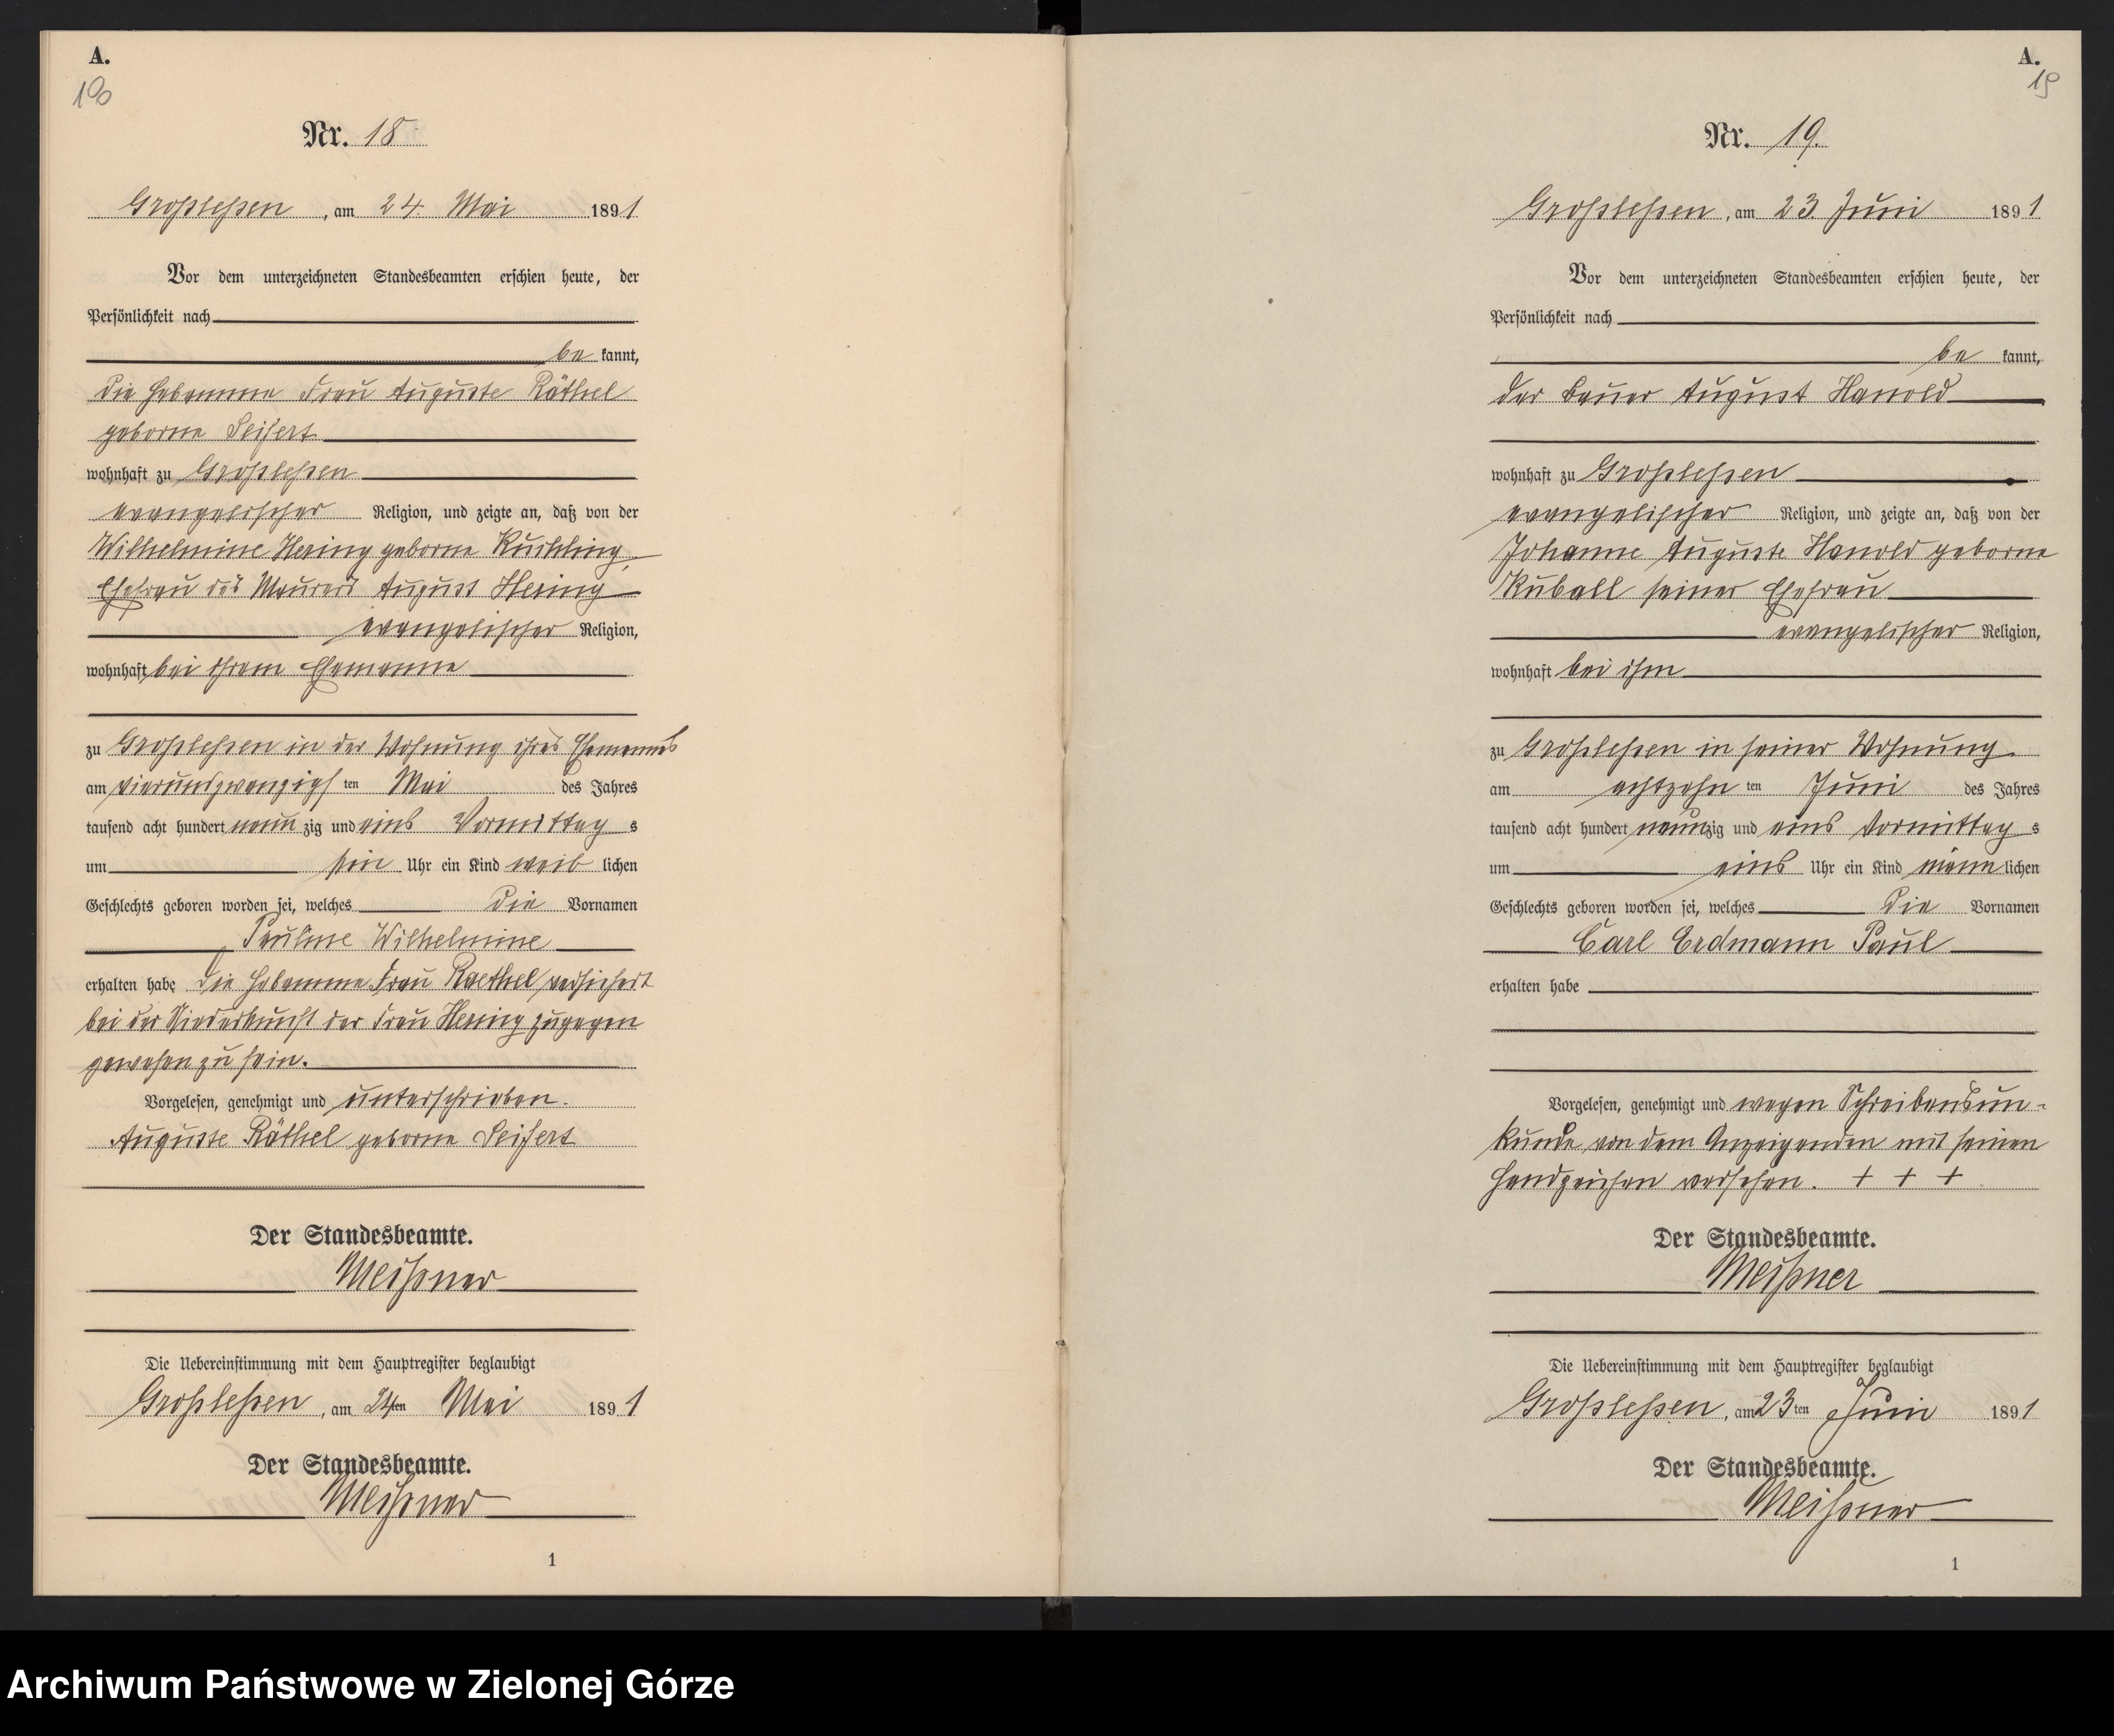 A.
Nr. 18
Großleßen, am 24. Mai 1891
Vor dem unterzeichneten Standesbeamten erschien heute, der
Persönlichkeit nach
be kannt,
die Hebamme Frau Auguste Räthel
geborne Seifert
wohnhaft zu Großleßen
evangelischer Religion, und zeigte an, daß von der
Wilhelmine Hering geborne Kuchling,
Ehefrau des Maurers August Hering
evangelischer Religion,
wohnhaft bei ihrem Ehemanne
zu Großleßen in der Wohnung ihres Ehemannes
am vierundzwanzigs ten Mai des Jahres
tausend acht hundert neun zig und eins Vormittag s
um Uhr ein Kind weib lichen
Geschlechts geboren worden sei, welches die Vornamen
Pauline Wilhelmine
erhalten habe die Hebamme Frau Raethel versichert
bei der Niederkunft der Frau Hering zugegen
gewesen zu sein.
Vorgelesen, genehmigt und unterschrieben.
Auguste Räthel geborne Seifert
Der Standesbeamte.
Meißner
Die Uebereinstimmung mit dem Hauptregister beglaubigt
Großleßen, am 24ten Mai 1891
Der Standesbeamte.
Meißner
1
A.
19
Nr. 19.
Großleßen, am 23. Juni 1891
Vor dem unterzeichneten Standesbeamten erschien heute, der
Persönlichkeit nach
be kannt,
der Bauer August Hanold
wohnhaft zu Großleßen
evangelischer Religion, und zeigte an, daß von der
Johanne Auguste Hanold geborne
Kuball seiner Ehefrau
evangelischer Religion,
wohnhaft bei ihm
zu Großleßen in seiner Wohnung
am achtzehn ten Juni des Jahres
tausend acht hundert neunzig und eins Vormittag s
um eins Uhr ein Kind männ lichen
Geschlechts geboren worden sei, welches die Vornamen
Carl Erdmann Paul
erhalten habe
Vorgelesen, genehmigt und wegen Schreibensun-
kunde von dem Anzeigenden mit seinen
Handzeichen versehen. + + +
Der Standesbeamte.
Meißner
Die Uebereinstimmung mit dem Hauptregister beglaubigt
Großleßen, am 23 ten Juni 1891
Der Standesbeamte.
Meißner
1
Archiwum Państwowe w Zielonej Górze